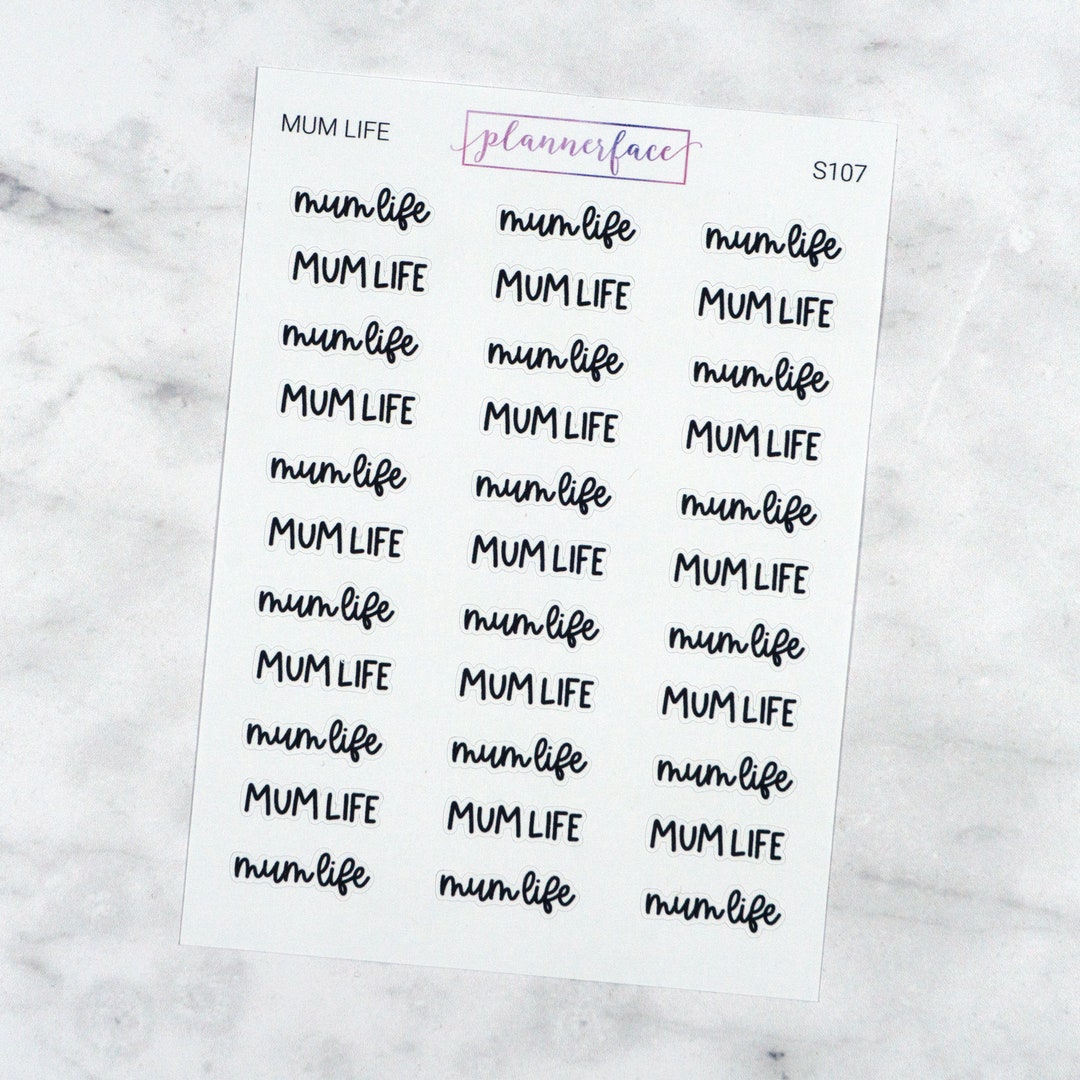 MUM LIFE plannerface S107
mum life mum life mum life
MUM LIFE MUM LIFE MUM LIFE
mum life mum life mum life
MUM LIFE MUM LIFE MUM LIFE
mum life mum life mum life
MUM LIFE MUM LIFE MUM LIFE
mum life mum life mum life
MUM LIFE MUM LIFE MUM LIFE
mum life mum life mum life
MUM LIFE MUM LIFE MUM LIFE
mum life mum life mum life